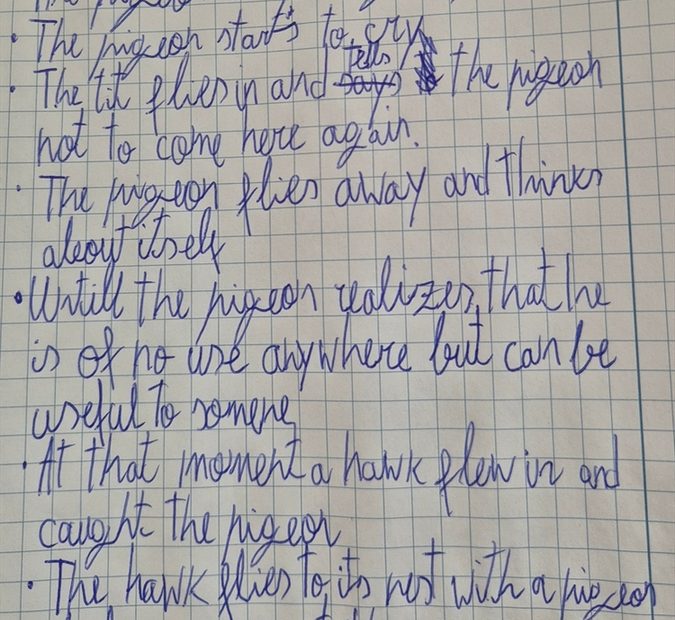 • The pigeon starts to cry
• The tit flies in and tells says the pigeon
not to come here again.
• The pigeon flies away and thinks
about itself
• Untill the pigeon realizes, that he
is of no use anywhere but can be
useful to somene
• At that moment a hawk flew in and
caught the pigeon
• The hawk flies to its nest with a pigeon